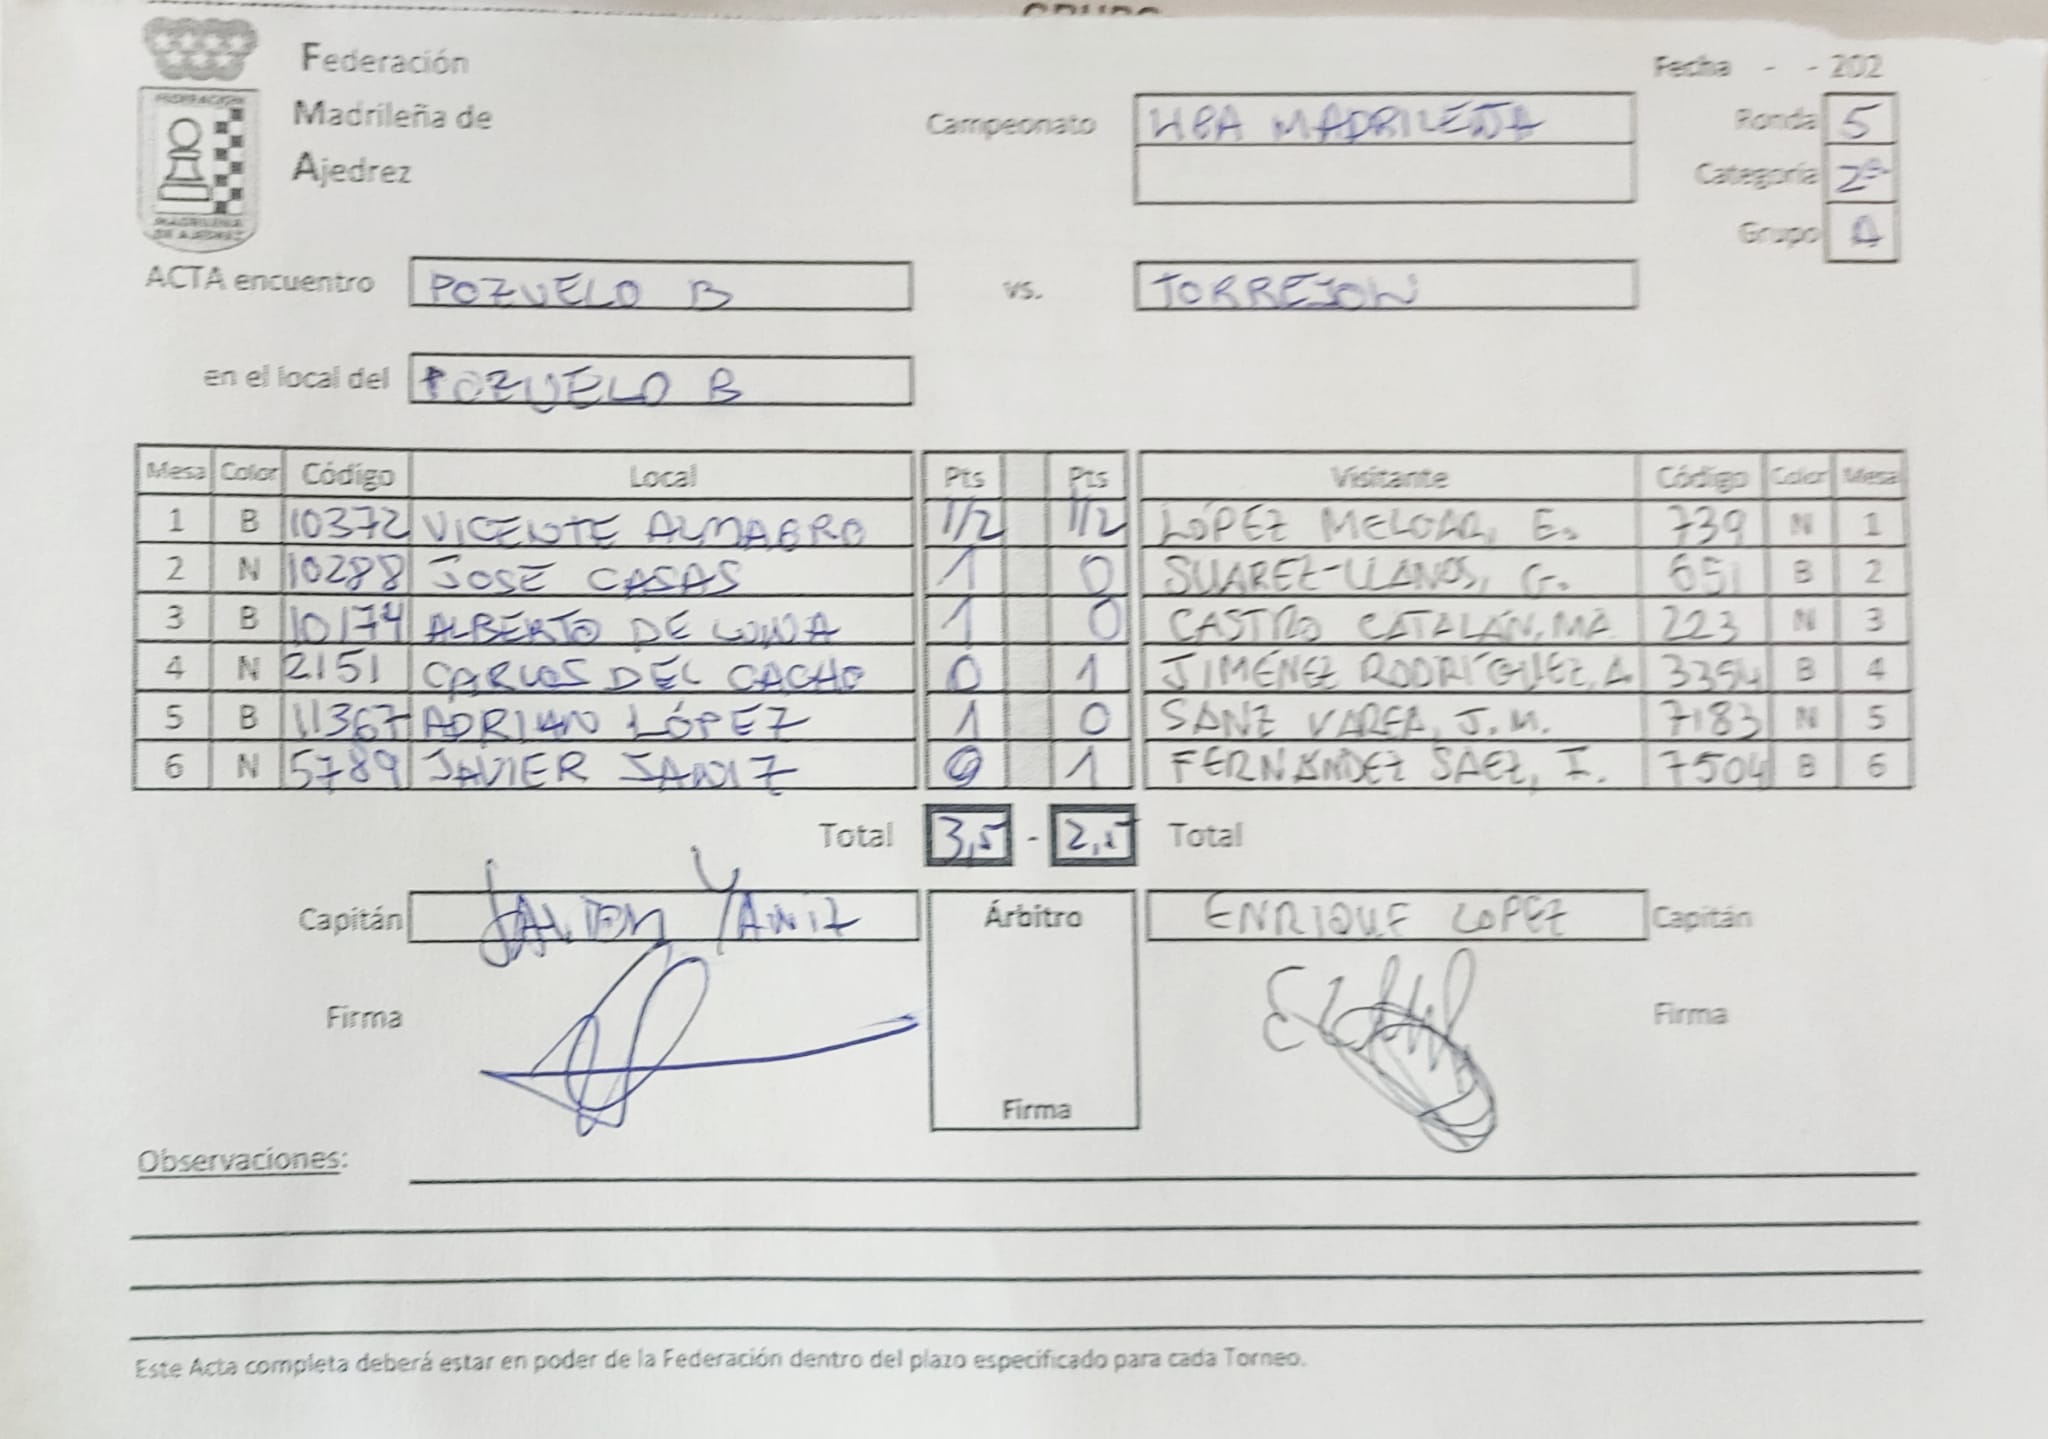 Federación
Madrileña de
Ajedrez
FEDERACION
MADRILEÑA
DE AJEDREZ
Fecha - - 202
Campeonato LIGA MADRILEÑA
Ronda 5
Categoría 2ª
Grupo A
ACTA encuentro POZUELO B vs. TORREJON
en el local del POZUELO B
Mesa Color Código Local Pts Pts Visitante Código Color Mesa
1 B 10372 VICENTE ALMAGRO 1/2 1/2 LÓPEZ MELGAR, E. 739 N 1
2 N 10288 JOSE CASAS 1 0 SUAREZ-LLANOS, G. 651 B 2
3 B 10174 ALBERTO DE LUNA 1 0 CASTRO CATALÁN, MA 223 N 3
4 N 2151 CARLOS DEL CACHO 0 1 JIMÉNEZ RODRÍGUEZ, A. 3354 B 4
5 B 11367 ADRIAN LÓPEZ 1 0 SANZ VAREA, J.M. 7183 N 5
6 N 5789 JAVIER 0 1 FERNÁNDEZ SAEZ, I. 7504 B 6
Total 3,5 - 2,5 Total
Capitán Árbitro ENRIQUE LOPEZ Capitán
Firma Firma
Firma
Observaciones:
Este Acta completa deberá estar en poder de la Federación dentro del plazo especificado para cada Torneo.